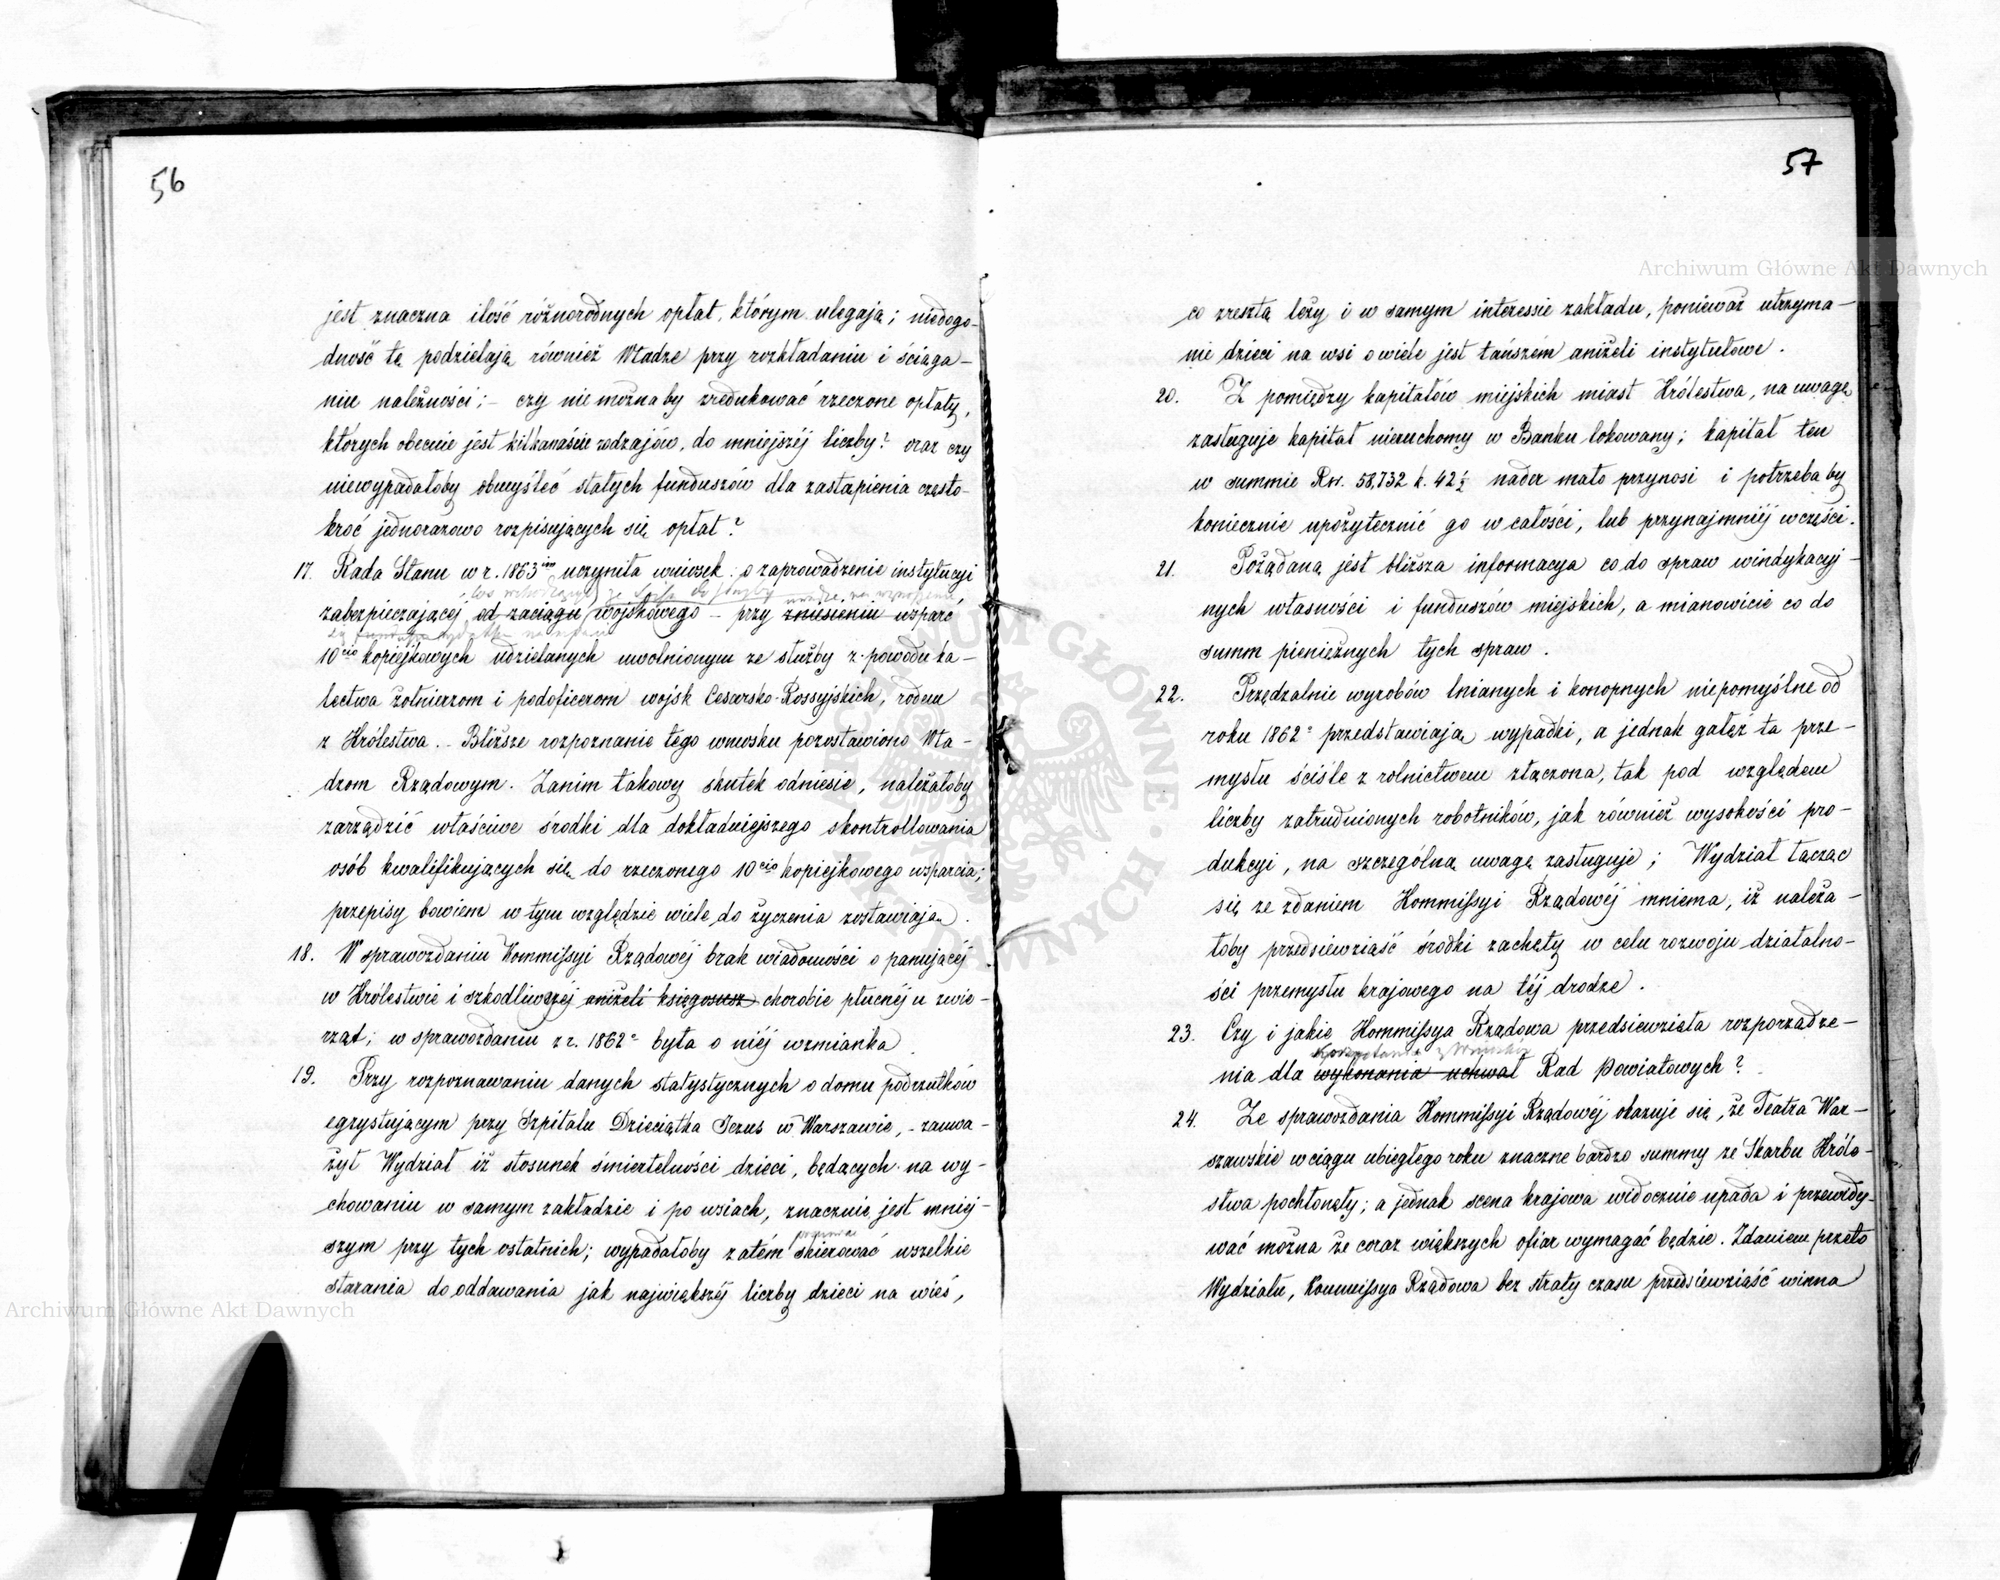 56
jest znaczna ilość różnorodnych opłat, którym ulegają; niedogo-
dność tę podzielają również Władze przy rozkładaniu i ściąga-
niu należności; - czy nie możnaby zredukować rzeczone opłaty,
których obecnie jest kilkanaście rodzajów, do mniejszéj liczby? oraz czy
niewypadałoby obmyśleć stałych funduszów dla zastąpienia często-
kroć jednorazowo rozpisujących się opłat?
17. Rada Stanu w r. 1863im uczyniła wniosek: o zaprowadzenie instytucyi
zabezpieczającéj od zaciągu wojskowego - przy zniesieniu wsparć
10cio kopiejkowych udzielanych uwolnionym ze służby z powodu ka-
lectwa żołnierzom i podoficerom wojsk Cesarsko-Rossyjskich, rodem
z Królestwa. - Bliższe rozpoznanie tego wniosku pozostawiono Wła-
dzom Rządowym. Zanim takowy skutek odniesie, należałoby
zarządzić właściwe środki dla dokładniejszego skontrollowania
osób kwalifikujących się do rzeczonego 10cio kopiejkowego wsparcia;
przepisy bowiem w tym względzie wiele do życzenia zostawiają.
18. W sprawozdaniu Kommissyi Rządowéj brak wiadomości o panującéj
w Królestwie i szkodliwszéj aniżeli księgosusz chorobie płucnéj u zwie-
rząt; w sprawozdaniu z r. 1862o była o niéj wzmianka.
19. Przy rozpoznawaniu danych statystycznych o domu podrzutków
egzystującym przy Szpitalu Dzieciątka Jezus w Warszawie, - zauwa-
żył Wydział iż stosunek śmiertelności dzieci, będących na wy-
chowaniu w samym zakładzie i po wsiach, znacznie jest mniej-
szym przy tych ostatnich; wypadałoby zatém skierować wszelkie
starania do oddawania jak największéj liczby dzieci na wieś,
57
co zresztą leży i w samym interessie zakładu, ponieważ utrzyma-
nie dzieci na wsi o wiele jest tańszém aniżeli instytutowe.
20. Z pomiędzy kapitałów miejskich miast Królestwa, na uwagę
zasługuje kapitał nieruchomy w Banku lokowany; kapitał ten
w summie Rsr. 58,732 k. 42 1/2 nader mało przynosi i potrzeba by
koniecznie upożytecznić go w całości, lub przynajmniéj w części.
21. Pożądaną jest bliższa informacya co do spraw windykacyj-
nych własności i funduszów miejskich, a mianowicie co do
summ pieniężnych tych spraw.
22. Przędzalnie wyrobów lnianych i konopnych niepomyślne od
roku 1862o przedstawiają wypadki, a jednak gałęź ta prze-
mysłu ściśle z rolnictwem złączona, tak pod względem
liczby zatrudnionych robotników, jak również wysokości pro-
dukcyi, na szczególną uwagę zasługuje; Wydział łącząc
się ze zdaniem Kommissyi Rządowéj mniema, iż należa-
łoby przedsiewziąść środki zachęty w celu rozwoju działalno-
ści przemysłu krajowego na téj drodze.
23. Czy i jakie Kommissya Rządowa przedsiewzięła rozporządze-
korzystania z wniosków
nia dla wykonania uchwał Rad Powiatowych?
24. Ze sprawozdania Kommissyi Rządowéj okazuje się, że Teatra War-
szawskie w ciągu ubiegłego roku znaczne bardzo summy ze Skarbu Króle-
stwa pochłonęły; a jednak scena krajowa widocznie upada i przewidy-
wać można że coraz większych ofiar wymagać będzie. Zdaniem przeto
Wydziału, Kommissya Rządowa bez straty czasu przedsiewziąść winna
Archiwum Główne Akt Dawnych
Archiwum Główne Akt Dawnych